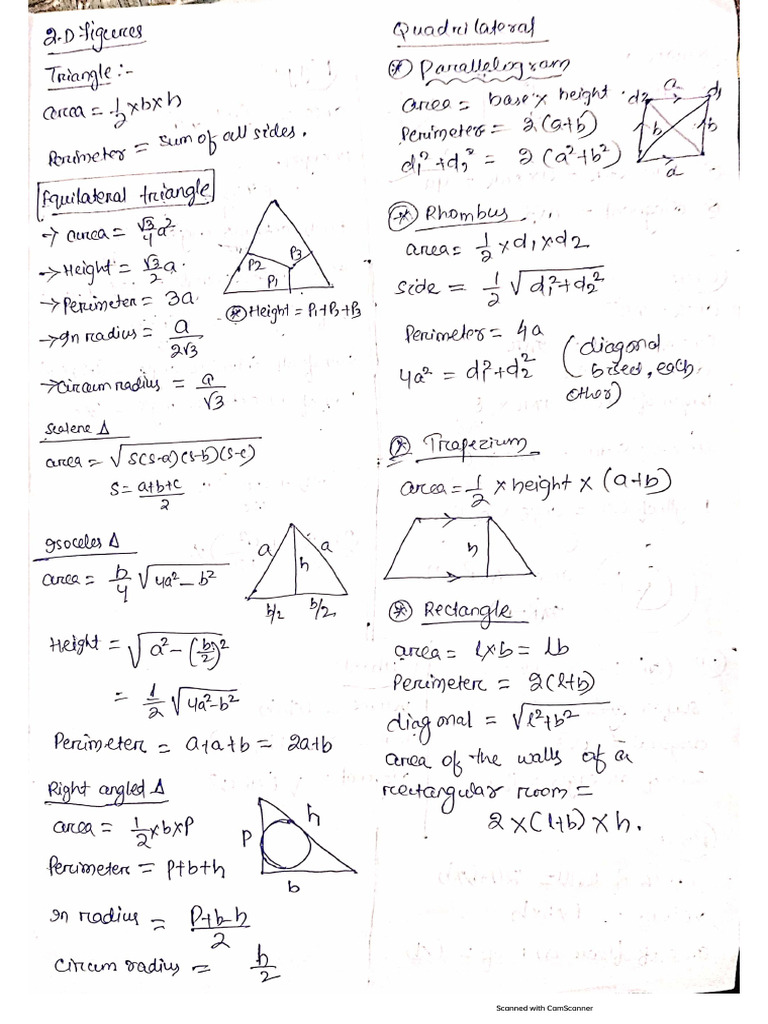 2.D figures
Triangle :-
area = 1/2 × b × h
Perimeter = sum of all sides.
Equilateral triangle
→ area = √3/4 a²
→ Height = √3/2 a
→ Perimeter = 3a
→ In radius = a/2√3
→ Circum radius = a/√3
P2 P3
P1
* Height = P1+P2+P3
Scalene Δ
area = √S(S-a)(S-b)(S-c)
S = a+b+c/2
Isoceles Δ
area = b/4 √4a² - b²
a a
h
b/2 b/2
Height = √a² - (b/2)²
= 1/2 √4a²-b²
Perimeter = a+a+b = 2a+b
Right angled Δ
area = 1/2 × b × P
Perimeter = P+b+h
P h
b
In radius = P+b-h/2
Circum radius = h/2
Quadrilateral
* Parallelogram
area = base × height
Perimeter = 2(a+b)
d1² + d2² = 2(a²+b²)
d2 a d1
b b
a
* Rhombus
area = 1/2 × d1 × d2
side = 1/2 √d1²+d2²
Perimeter = 4a
4a² = d1²+d2² (diagonal
bisect, each
other)
* Trapezium
area = 1/2 × height × (a+b)
h
* Rectangle
area = l×b = lb
Perimeter = 2(l+b)
diagonal = √l²+b²
area of the walls of a
rectangular room =
2×(l+b)×h.
Scanned with CamScanner